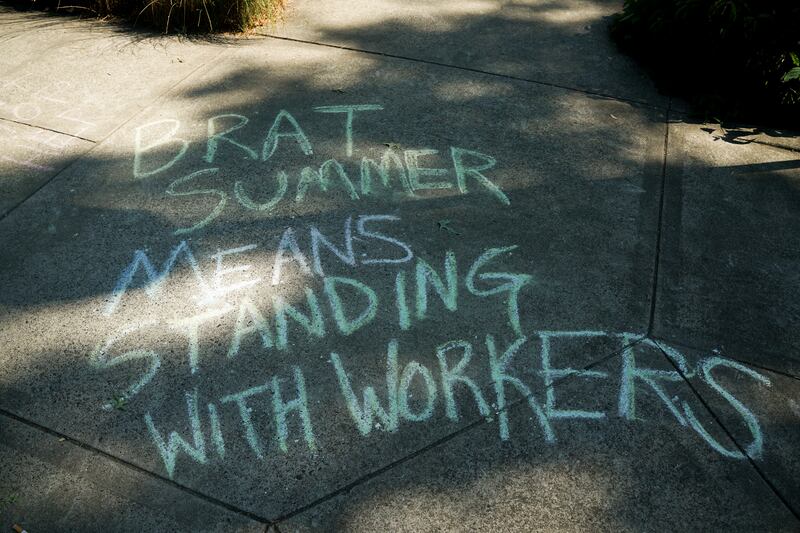 BRAT
SUMMER
MEANS
STANDING
WITH WORKERS